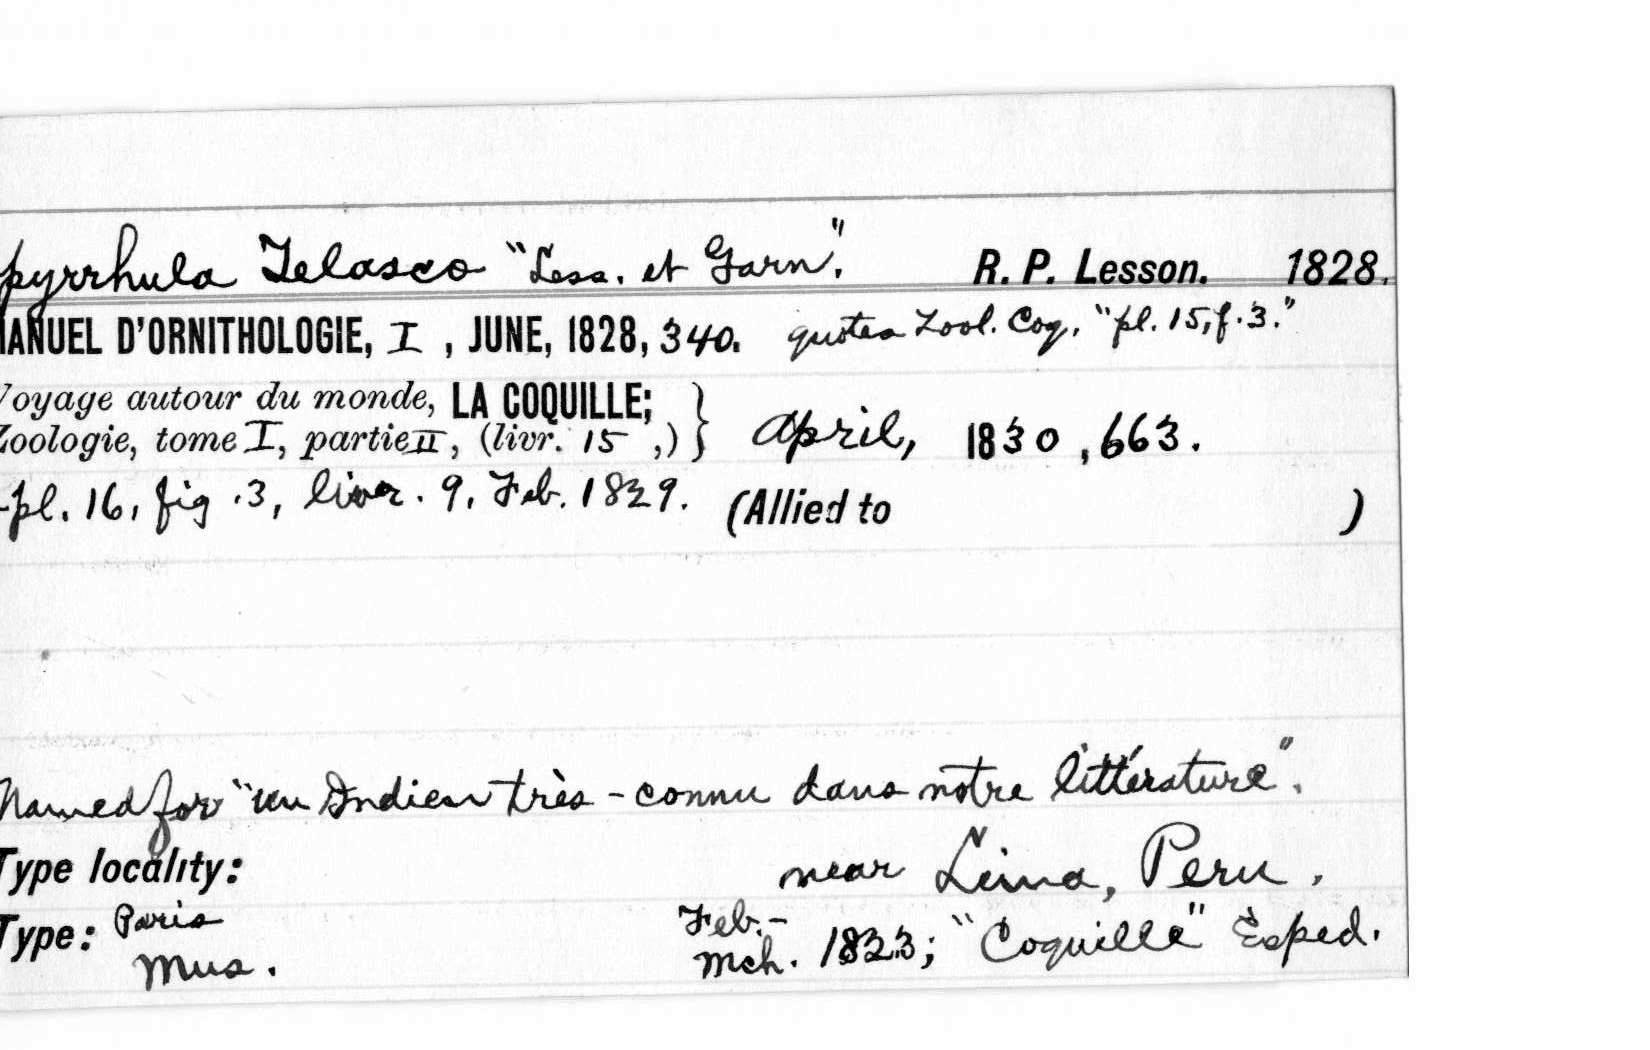 pyrrhula Telasco "Less. et Garn." R. P. Lesson. 1828.
MANUEL D'ORNITHOLOGIE, I , JUNE, 1828, 340. quotes Zool. Coq. "pl. 15, f. 3."
Voyage autour du monde, LA COQUILLE;
Zoologie, tome I, partie II, (livr. 15 ,) } April, 1830 , 663.
-pl. 16, fig. 3, livr. 9, Feb. 1829. (Allied to )
Named for "un Indien très-connu dans notre littérature".
Type locality: near Lima, Peru.
Type: Paris Mus. Feb.-
Mch. 1823; "Coquille" Exped.